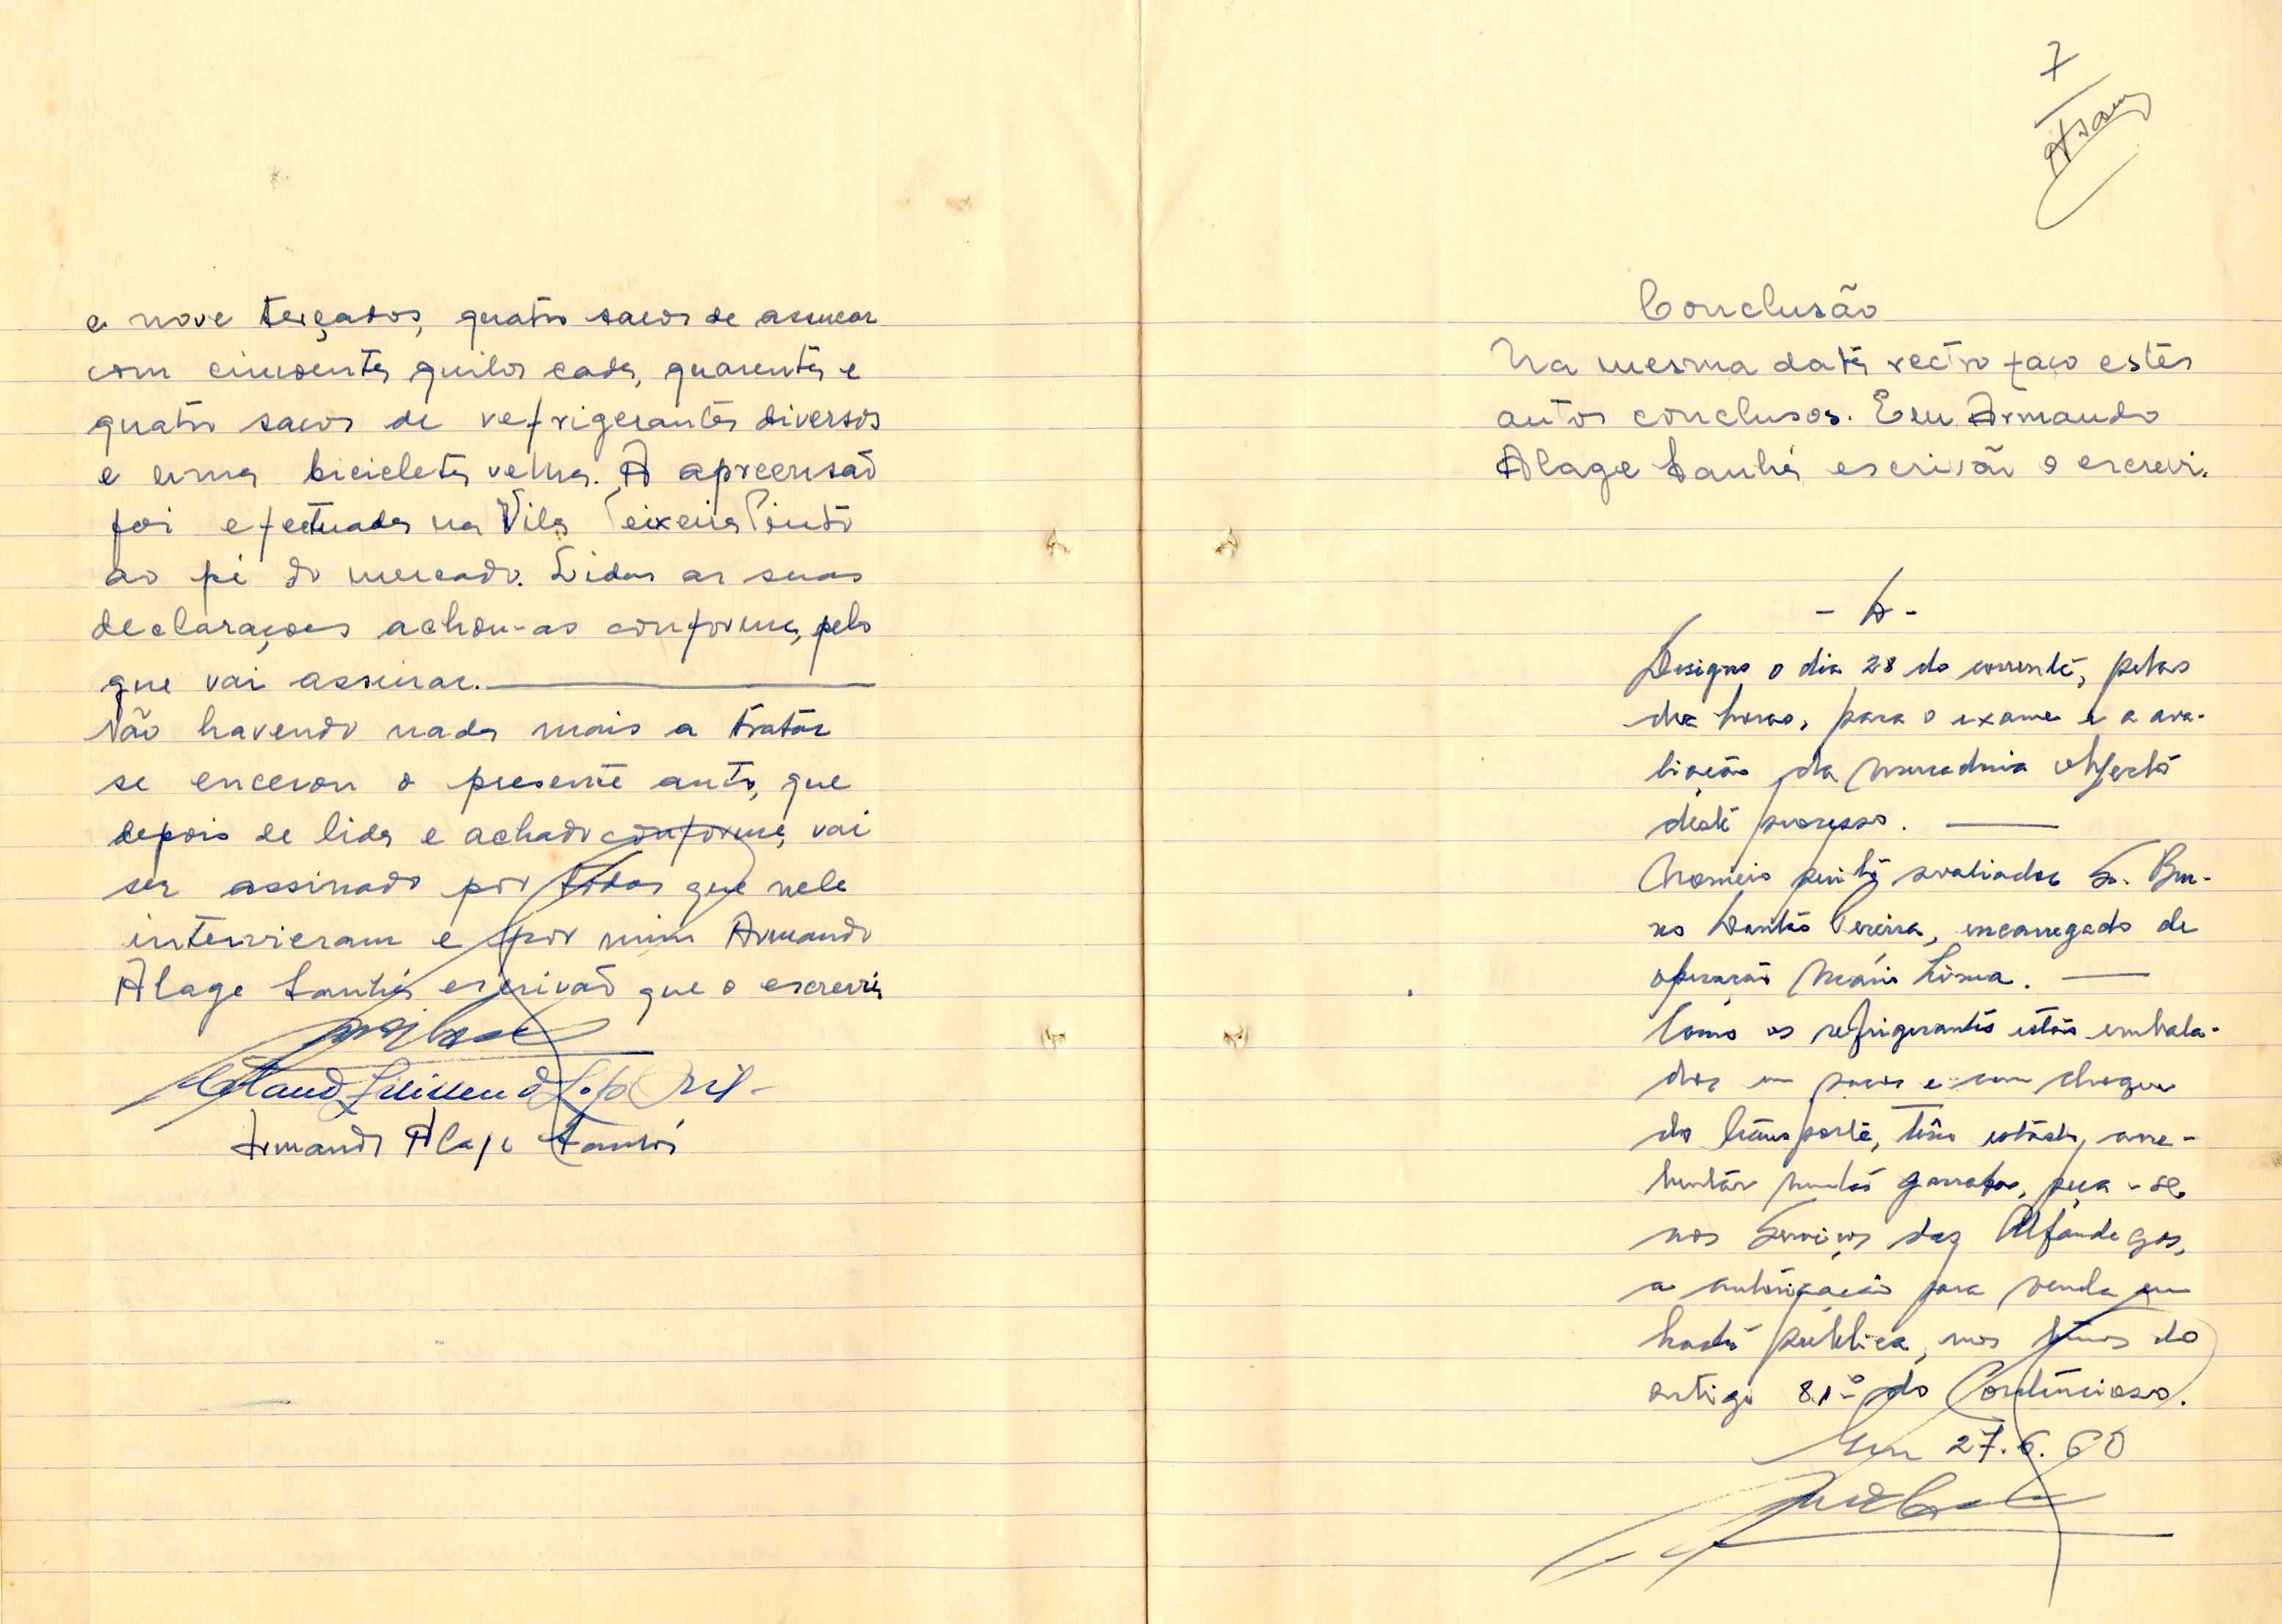 e nove terçados, quatro sacos de assucar
com cincoenta quilos cada, quarenta e
quatro sacos de refrigerantes diversos
e uma bicicleta velha. A apreensão
foi efectuada na Vila Teixeira Pinto
ao pé do mercado. Lidas as suas
declarações achou-as conforme, pelo
que vai assinar.
Não havendo nada mais a tratar
se encerou o presente auto, que
depois de lida e achado conforme, vai
ser assinado por todos que nele
intervieram e por mim Armando
Alage Sanhá escrivão que o escrevi
Armando Alage Sanhá
7
Conclusão
Na mesma data rectro faço estes
autos conclusos. Eeu Armando
Alage Sanhá escrivão o escrevi.
Designo o dia 28 do corrente, pelas
dez horas, para o exame e a ava-
liação da mercadoria objecto
deste processo.
Nomeio perito avaliador Sr. Bru-
no Dantas Pereira, encarregado de
operação Mário Lima.
Como os refrigerantes estão embala-
dos em sacos e com choque
do transporte, têm estado, arre-
bentar muitas garrafas, peça-se
nos Serviços das Alfandegas,
a autorização para venda em
hasta pública, nos termos do
artigo 81º do Contencioso.
Em 27.6.60